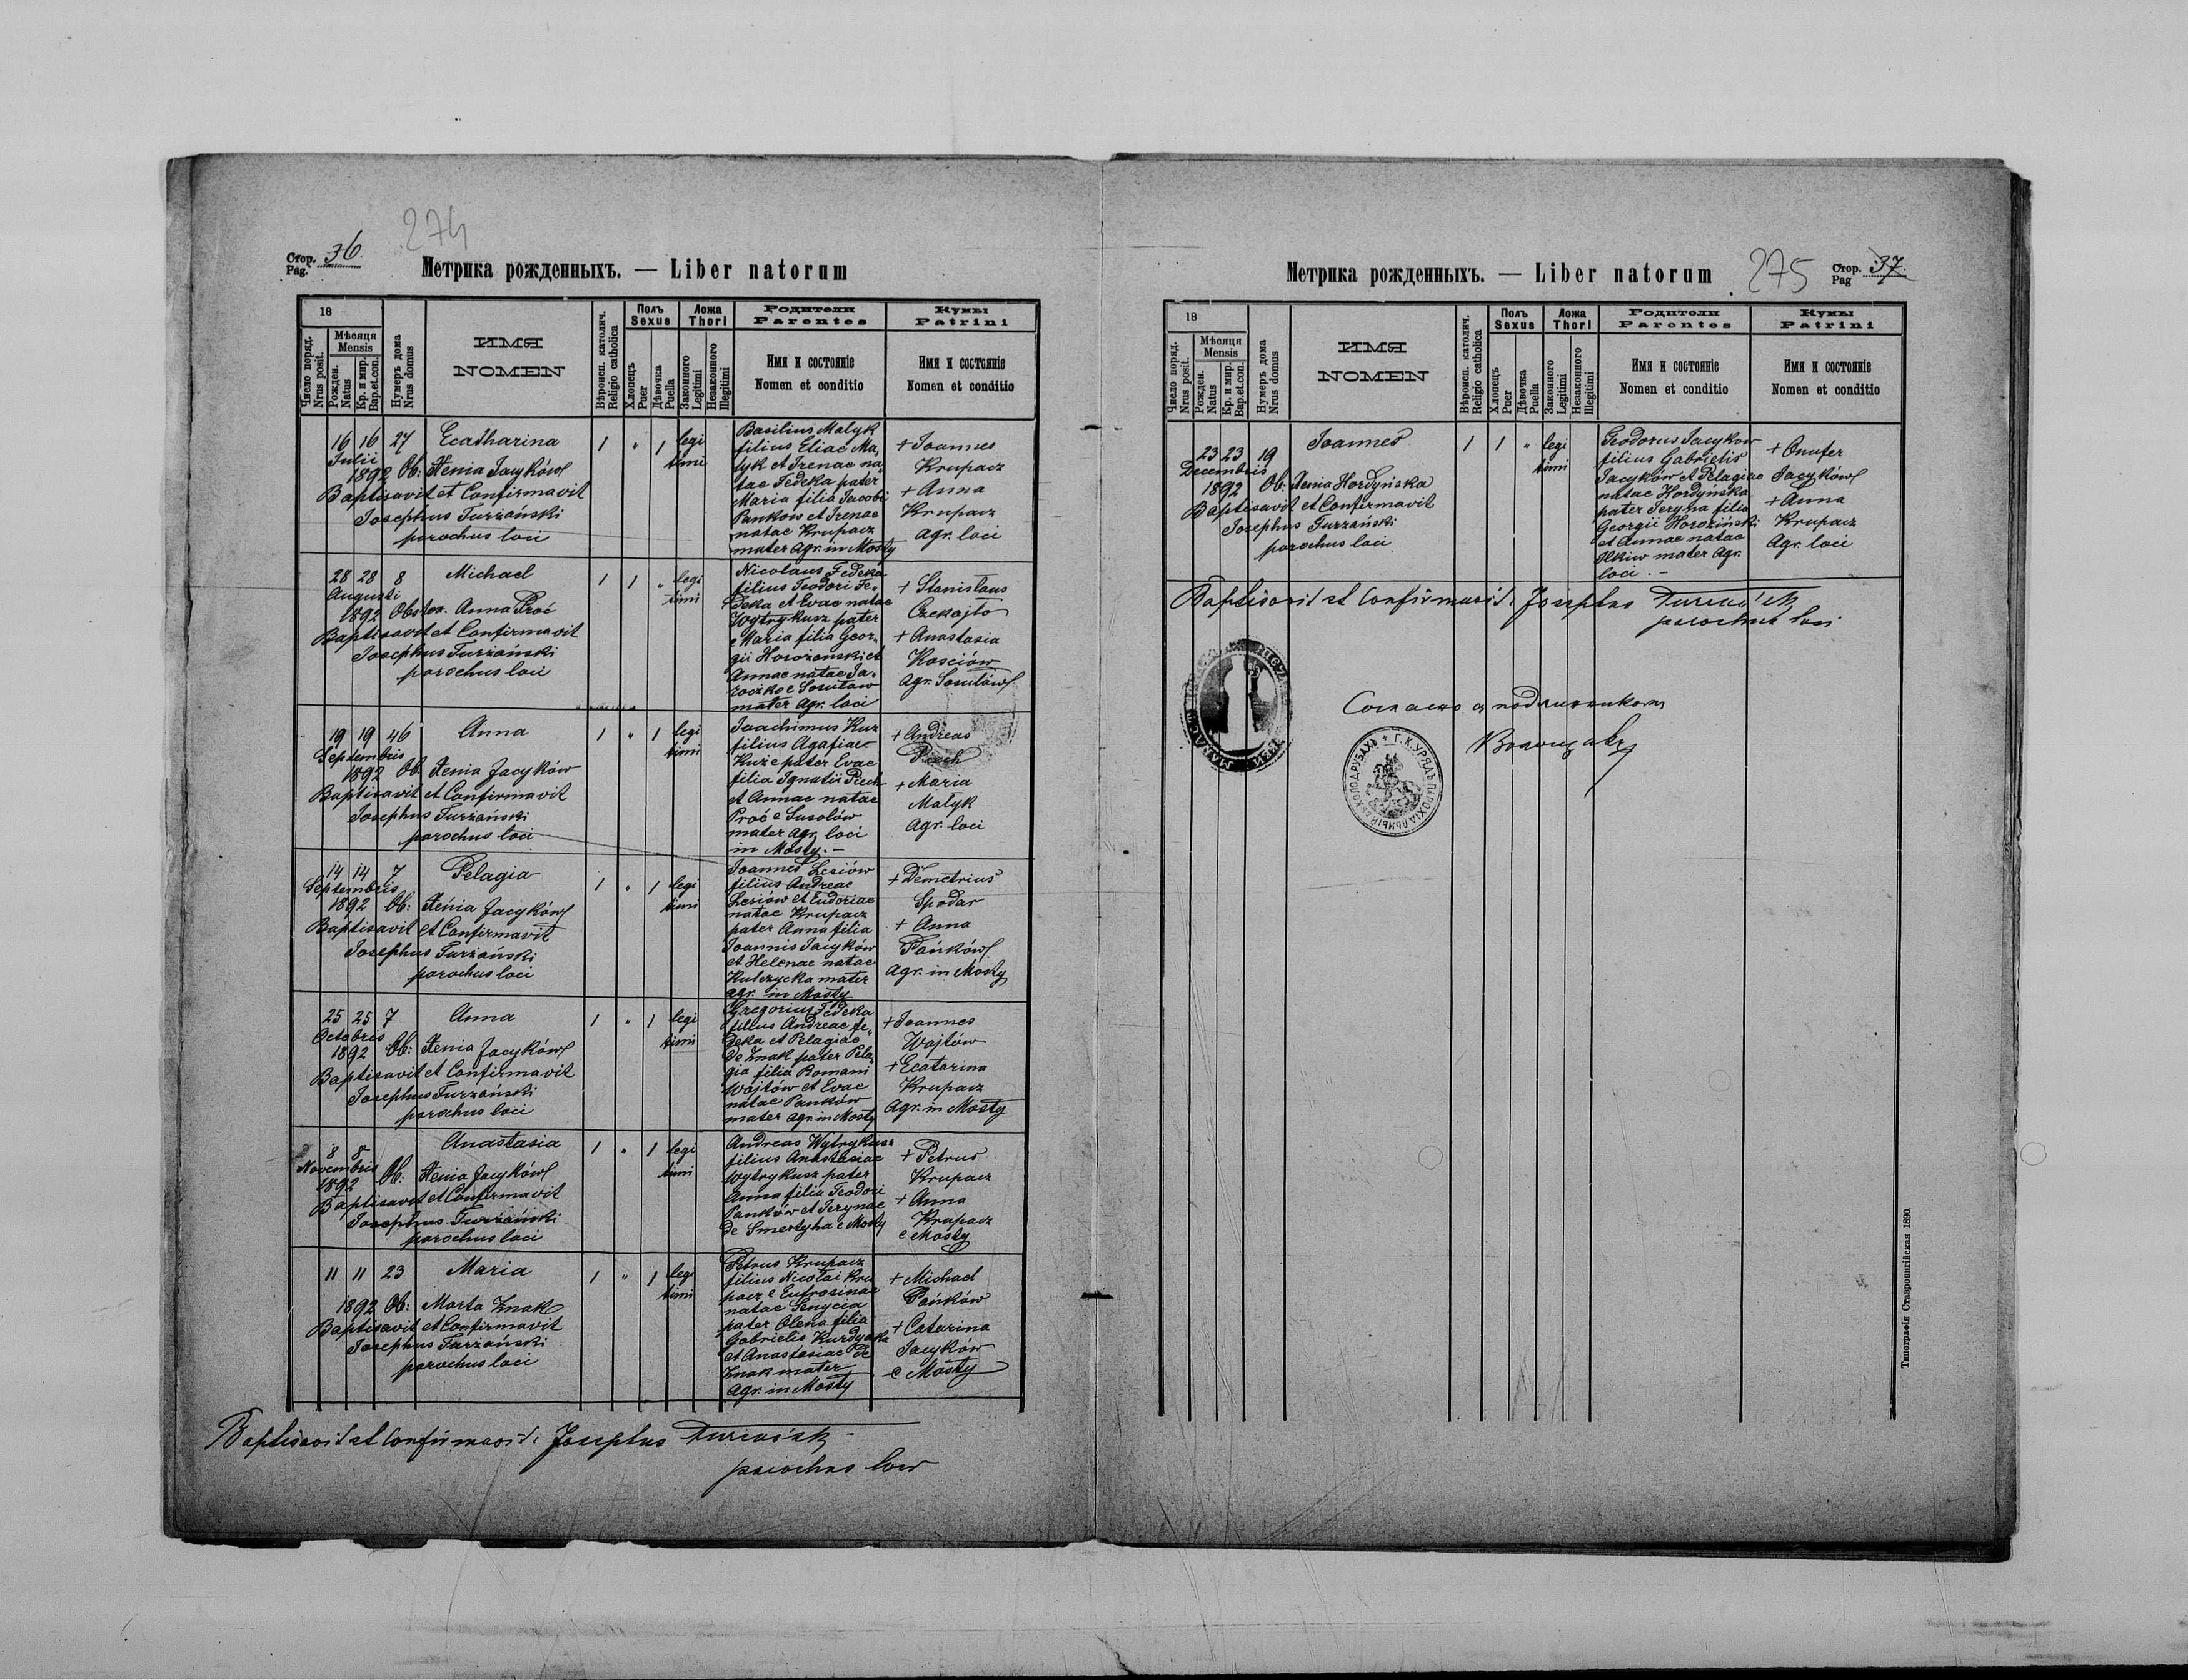 274
Стор. 36.
Pag.
Метрика рожденныхъ. — Liber natorum
18
Число поряд.
Nrus posit.
Мѣсяця
Mensis
Рожден.
Natus
Кр. и мир.
Bap.et.con.
Нумеръ дома
Nrus domus
ИМЯ
NOMEN
Вѣроисп. католич.
Religio catholica
Полъ
Sexus
Хлопець
Puer
Дѣвочка
Puella
Ложа
Thori
Законного
Legitimi
Незаконного
Illegitimi
Родители
Parentes
Имя и состояніе
Nomen et conditio
Кумы
Patrini
Имя и состояніе
Nomen et conditio
16 16 27 Ecatharina 1 " 1 legi
timi
Julii
1892 Ob: Xenia Jacyków
Baptisavit et Confirmavit
Josephus Turzański
parochus loci
Basilius Matyk
filius Eliae Ma,
tyk et Irenae na,
tae Fedeka pater
Maria filia Jacobi
Pankow et Irenae
natae Krupacz
mater Agr. in Mosty
+ Joannes
Krupacz
+ Anna
Krupacz
Agr. loci
28 28 8 Michael 1 1 " legi
timi
Augusti
1892 Obstox. Anna Proć
Baptisavit et Confirmavit
Josephus Turzański
parochus loci
Nicolaus Fedeka
filius Teodori Fe,,
deka et Evae natae
Wytrykusz pater
Maria filia Geor,,
gii Horożanski et
Annae natae Ja,
roczko e Sosulow
mater Agr. loci
+ Stanislaus
Czekajło
+ Anastasia
Kosciów
Agr. Sosulów
19 19 46 Anna 1 " 1 legi
timi
Septembris
1892 Ob Xenia Jacyków
Baptisavit et Confirmavit
Josephus Turzański
parochus loci
Joachimus Kuz
filius Agafiae
Kuz e pater Evae
filia Ignatii Piech
et Annae natae
Proć e Susolów
mater Agr. loci
in Mosty. —
+ Andreas
Piech
+ Maria
Matyk
Agr. loci
14 14 7 Pelagia 1 " 1 legi
timi
Septembris
1892 Ob: Xenia Jacyków
Baptisavit et Confirmavit
Josephus Turzański
parochus loci
Joannes Lesiów
filius Andreae
Lesiów et Eudoriae
natae Krupacz
pater Anna filia
Joannis Jacyków
et Helenae natae
Kulczycka mater
agr. in Mosty
+ Demetrius
Spodar
+ Anna
Pańków
Agr. in Mosty
25 25 7 Anna 1 " 1 legi
timi
Octobris
1892 Ob: Xenia Jacyków
Baptisavit et Confirmavit
Josephus Turzański
parochus loci
Gregorius Fedeka
filius Andreae Fe,,
deka et Pelagiae
de Znak pater Pela,
gia filia Romani
Wojtów et Evae
natae Panków
mater Agr. in Mosty
+ Joannes
Wojtów
+ Ecatarina
Krupacz
Agr. in Mosty
8 8 Anastasia 1 " 1 legi
timi
Novembris
1892 Ob: Xenia Jacyków
Baptisavit et Confirmavit
Josephus Turzański
parochus loci
Andreas Wytrykusz
filius Anastasiae
Wytrykusz pater
Anna filia Teodori
Panków et Jerynae
de Smertyha e Mosty
+ Petrus
Krupacz
+ Anna
Krupacz
e Mosty
11 11 23 Maria 1 " 1 legi
timi
1892 Ob: Marta Znak
Baptisavit et Confirmavit
Josephus Turzański
parochus loci
Petrus Krupacz
filius Nicolai Kru
pacz e Eufrosinae
natae Senycia
pater Olena filia
Gabrielis Kurdyaka
et Anastasiae de
Znak mater
Agr. in Mosty
+ Michael
Pańków
+ Catarina
Jacyków
e Mosty
Baptisavit et Confirmavit: Josephus Turzański
parochus loci
Метрика рожденныхъ. — Liber natorum
275
Стор. 37.
Pag
18
Число поряд.
Nrus posit.
Мѣсяця
Mensis
Рожден.
Natus
Кр. и мир.
Bap.et.con.
Нумеръ дома
Nrus domus
ИМЯ
NOMEN
Вѣроисп. католич.
Religio catholica
Полъ
Sexus
Хлопець
Puer
Дѣвочка
Puella
Ложа
Thori
Законного
Legitimi
Незаконного
Illegitimi
Родители
Parentes
Имя и состояніе
Nomen et conditio
Кумы
Patrini
Имя и состояніе
Nomen et conditio
23 23 19 Joannes 1 1 " legi
timi
Decembris
1892 Ob: Xenia Hordyńska
Baptisavit et Confirmavit
Josephus Turzański
parochus loci
Teodorus Jacykow
filius Gabrielis
Jacyków et Pelagiae
natae Hordyńska
pater Jeryna filia
Georgii Horoziński
et Annae natae
Ilkiw mater Agr.
loci. —
+ Onufer
Jacyków
+ Anna
Krupacz
Agr. loci
Baptisavit et Confirmavit: Josephus Turzański
parochus loci
Согласно съ подлинникомъ
Г. К. УРЯДЪ ПАРОХІАЛЬНЫЙ ВЪ КОЛОДРУБАХЪ
Типографія Ставропигійская 1890.